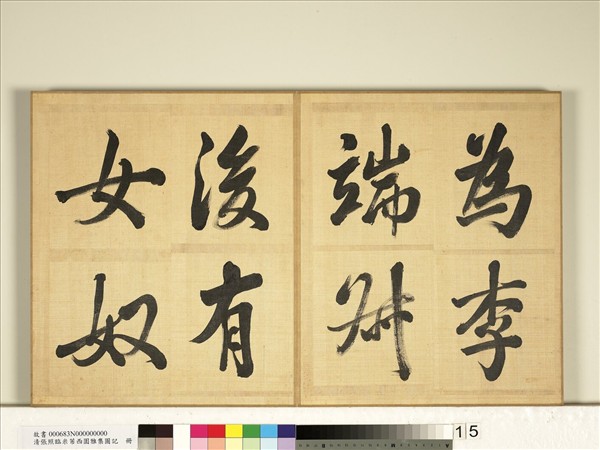 為李
端叔
後有
女奴
故書 000683N000000000
清張照臨米芾西園雅集圖記 冊
15